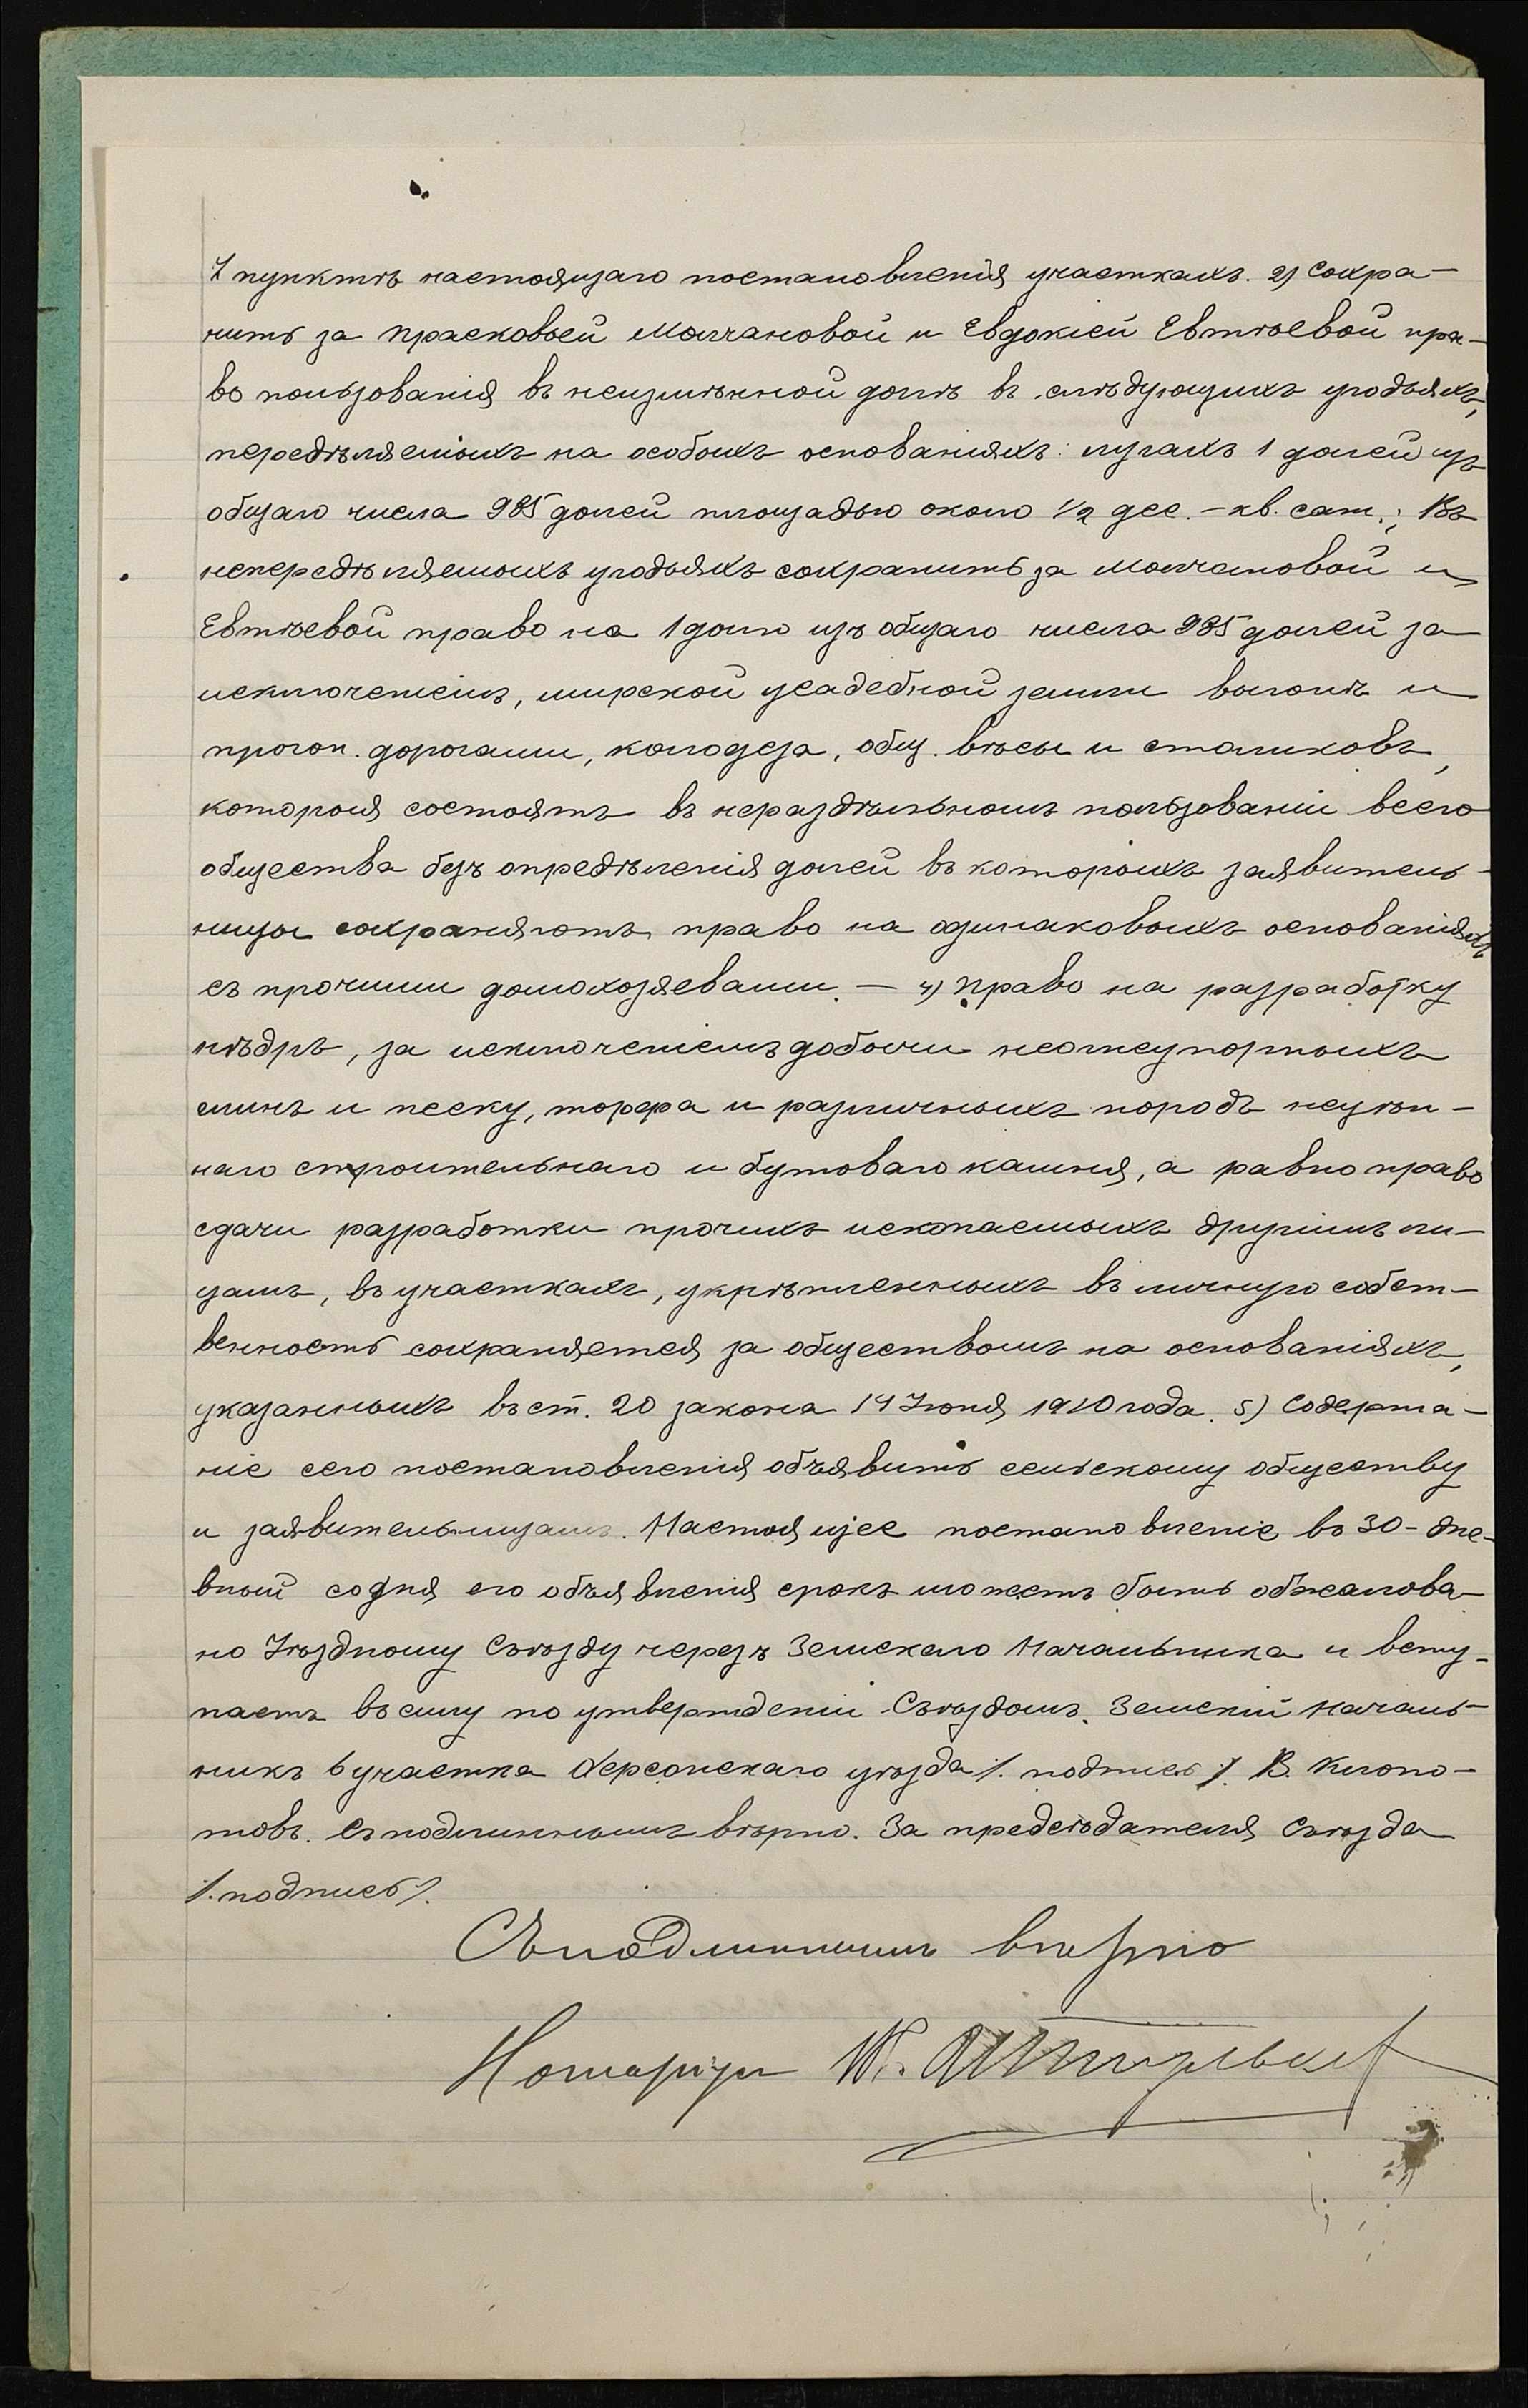 1 пунктѣ настоящаго постановленія участкахъ. 2) Сохра-
нить за Прасковьей Молчановой и Евдокіей Евтѣевой пра-
во пользованія въ неизмѣнной долѣ въ слѣдующихъ угодьяхъ,
передѣляемыхъ на особыхъ основаніяхъ: лугахъ 1 долей изъ
общаго числа 985 долей площадью около ½ дес. - кв. саж.; Въ
непередѣляемыхъ угодьяхъ сохранить за Молчановой и
Евтѣевой право на 1 долю изъ общаго числа 985 долей за
исключеніемъ, мирской усадебной земли выгонѣ и
прогон. дорогами, колодеза, общ. вѣсы и сталиковъ,
которыя состоятъ въ нераздѣльномъ пользованіи всего
общества безъ опредѣленія долей въ которыхъ заявитель-
ницы сохраняютъ право на одинаковыхъ основаніяхъ
съ прочими домохозяевами. - 4) Право на разработку
нѣдръ, за исключеніемъ добычи неогнеупорныхъ
глинъ и песку, торфа и различныхъ породъ неуѣн-
наго строительнаго и бутоваго камня, а равно право
сдачи разработки прочихъ ископаемыхъ другимъ ли-
цамъ, въ участкахъ, укрѣпленныхъ въ личную собст-
венность сохраняется за обществомъ на основаніяхъ,
указанныхъ въ ст. 20 закона 14 Іюня 1910 года. 5) Содержа-
ніе сего постановленія объявить сельскому обществу
и заявительницамъ. Настоящее постановленіе въ 30-дне-
вный со дня его объявленія срокъ можетъ быть обжалова-
но Уѣздному Съѣзду черезъ Земскаго Начальника и всту-
паетъ въ силу по утвержденіи Съѣздомъ. Земскій Началь-
никъ 6 участка Херсонскаго уѣзда /. подпись /. В. Клопо-
товъ. Съ подлиннымъ вѣрно. За предсѣдателя Съѣзда
/. подпись /.
Съ подлиннымъ вѣрно
Нотаріусъ